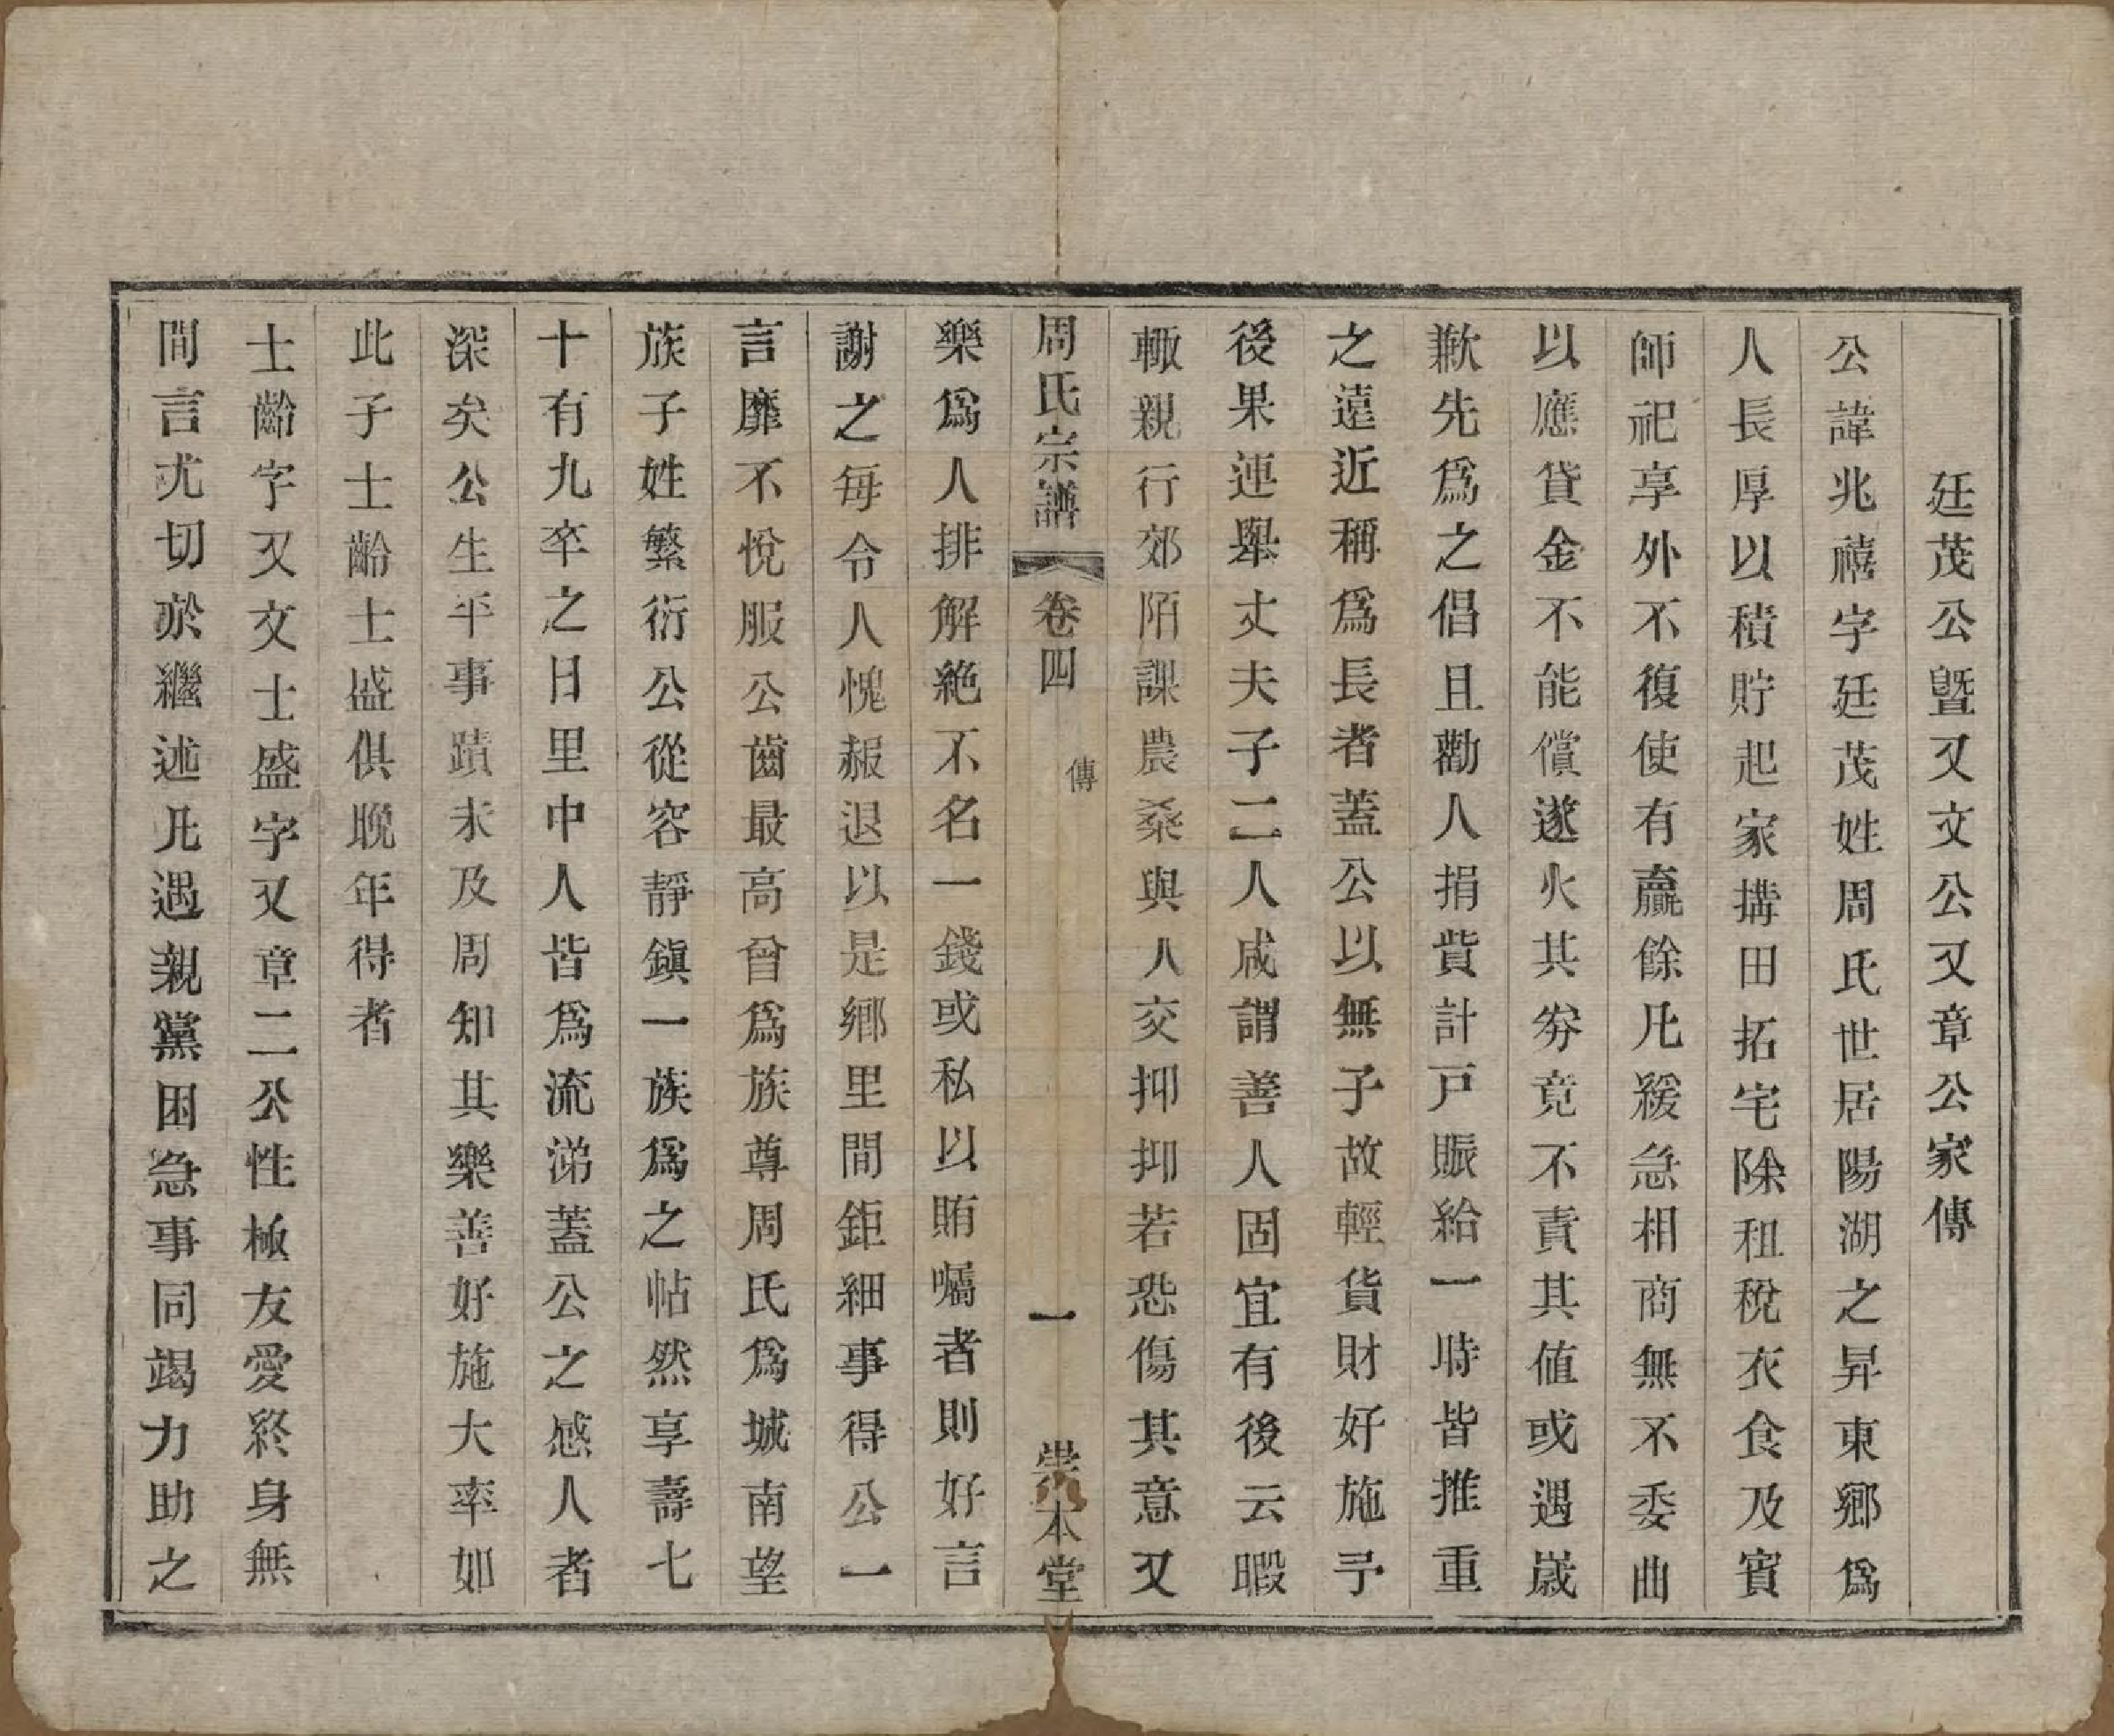 廷茂公曁又文公又章公家傳
公諱兆禧字廷茂姓周氏世居陽湖之昇東鄉爲
人長厚以積貯起家搆田拓宅除租稅衣食及賓
師祀享外不復使有贏餘凡緩急相商無不委曲
以應貸金不能償遂火其券竟不責其値或遇歲
歉先爲之倡且勸人捐貲計戸賑給一時皆推重
之遠近稱爲長者蓋公以無子故輕貨財好施予
後果連舉丈夫子二人咸謂善人固宜有後云暇
輙親行郊陌課農桑與人交抑抑若恐傷其意又
周氏宗譜 卷四 傳 一 崇本堂
樂爲人排解絶不名一錢或私以賄囑者則好言
謝之毎令人愧赧退以是鄉里間鉅細事得公一
言靡不悅服公齒最高曾爲族尊周氏爲城南望
族子姓繁衍公從容靜鎭一族爲之帖然享壽七
十有九卒之日里中人皆爲流涕蓋公之感人者
深矣公生平事蹟未及周知其樂善好施大率如
此子士齡士盛俱晚年得者
士齡字又文士盛字又章二公性極友愛終身無
間言尤切於繼述凡遇親黨困急事同竭力助之